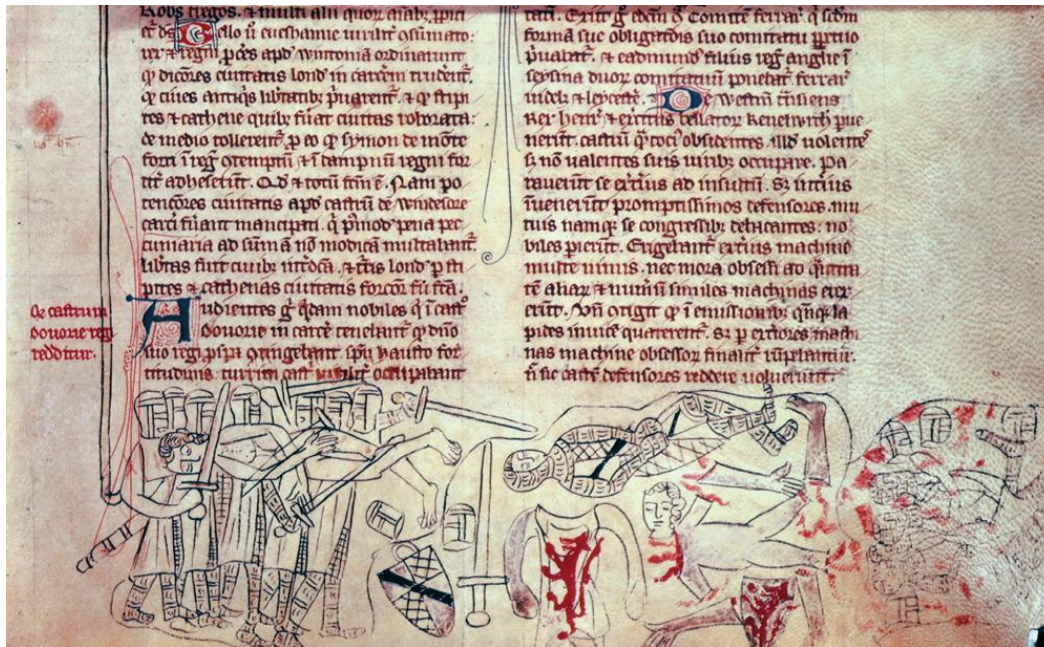 Robs tregos. & multi alii quor aīabȝ ppici
et ds Bello ū eueshamie uirilit gsumato:
rex & regni pces apd wintoniā ordinarunt
qd dicōres ciuitatis lond in carcem truderēt.
qd ciues antiqs libtatibȝ puarent. & qd stipi
tes & cathene quibȝ fūat ciuitas roborata:
de medio tollerent. p eo qd symon de mōte
forti ī reg 9temptū & ī dampnū regni for
tit adheserūt. Qd & totū ftm ē. Nam po
tenciores ciuitatis apd castrū de windesore
carci fūant mancipati. q pmod pena pec
cuniaria ad sūmā nō modicā multabant.
libtas fuit ciuibȝ intdca. & tris lond p sti
pites & cathenas ciuitatis forcior fū fca.
Qd castrum
douorie regi
redditur.
Audientes g qdam nobiles q ī cast
douorie in carce tenebant qd dno
suo regi pspa 9tingebant spu hausto for
titudinis turrim cast uirilit occupabant
tatū. Exiit g edcm qd Comitē ferrar q scdm
formā sue obligatōis suo comitatu ppetuo
puabat. & eadmund filius reg anglie ī
seysina duor comitatuū ponebat. ferrar
videlȝ & leycestr. De westm tnsiens
Rex henr & exercitus bellator kenelwrth pue
nerūt. castrū qd toci obsidentes. illd volentes
sȝ nō ualentes suis uiribȝ occupare. Pa
rauerūt se exterius ad insultū. Sȝ intius
īuenerūt promptissimos defensores. mu
tuis namqȝ se congressibȝ delacantes. no
biles pierūt. Erigebant exterius machine
multe nimis. nec mora obsessi ad qntita
tē aliar & numū similes machinas erex
erūt. Vn 9tigit qd ī emissionibȝ qnqȝ la
pides inuicē quaterent. Sȝ p exteriores machi
nas machine obsessor finalit rūpebantur.
n sic castr defensores reddere uoluerunt.